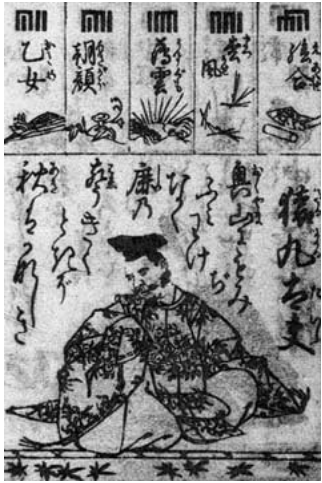 絵合
松風
薄雲
朝顔
乙女
猿丸太夫
奥山にもみ
ぢふみわけ
なく
鹿乃
聲きく
ときぞ
秋はかなしき